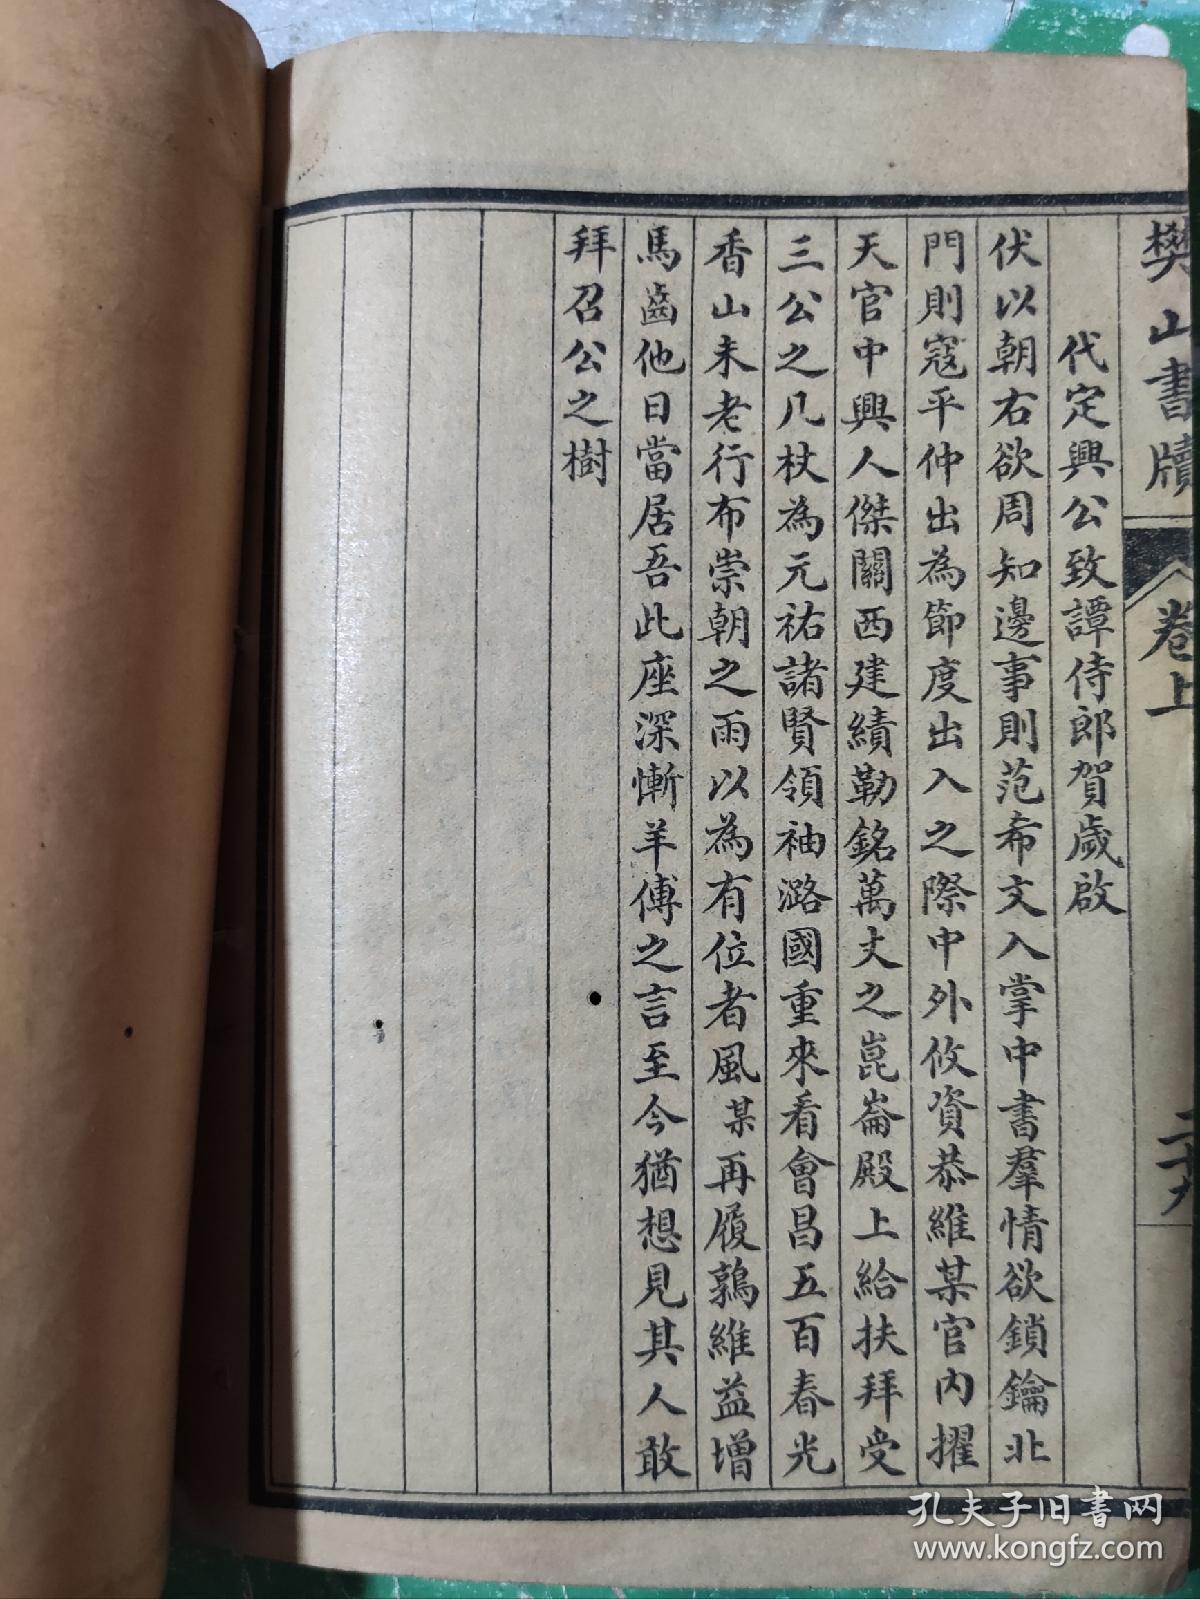 樊山書牘
卷上
二十九
代定興公致譚侍郎賀歲啟
伏以朝右欲周知邊事則范希文入掌中書羣情欲鎖鑰北
門則寇平仲出為節度出入之際中外攸資恭維某官內擢
天官中興人傑關西建績勒銘萬丈之崑崙殿上給扶拜受
三公之几杖為元祐諸賢領袖潞國重來看會昌五百春光
香山未老行布崇朝之雨以為有位者風某再履鶉維益增
馬齒他日當居吾此座深慚羊傅之言至今猶想見其人敢
拜召公之樹
孔夫子旧书网
www.kongfz.com